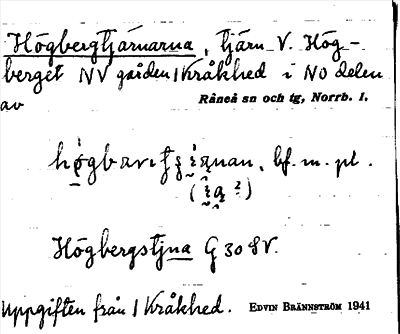 Högbergtjärnarna, tjärn V. Hög-
berget NV gården 1 Kråkhed i NO delen
av
Råneå sn och tg, Norrb. l.
bf. m. pl.
Högbergstjna G 30 SV.
Uppgiften från 1 Kråkhed. EDVIN BRÄNNSTRÖM 1941